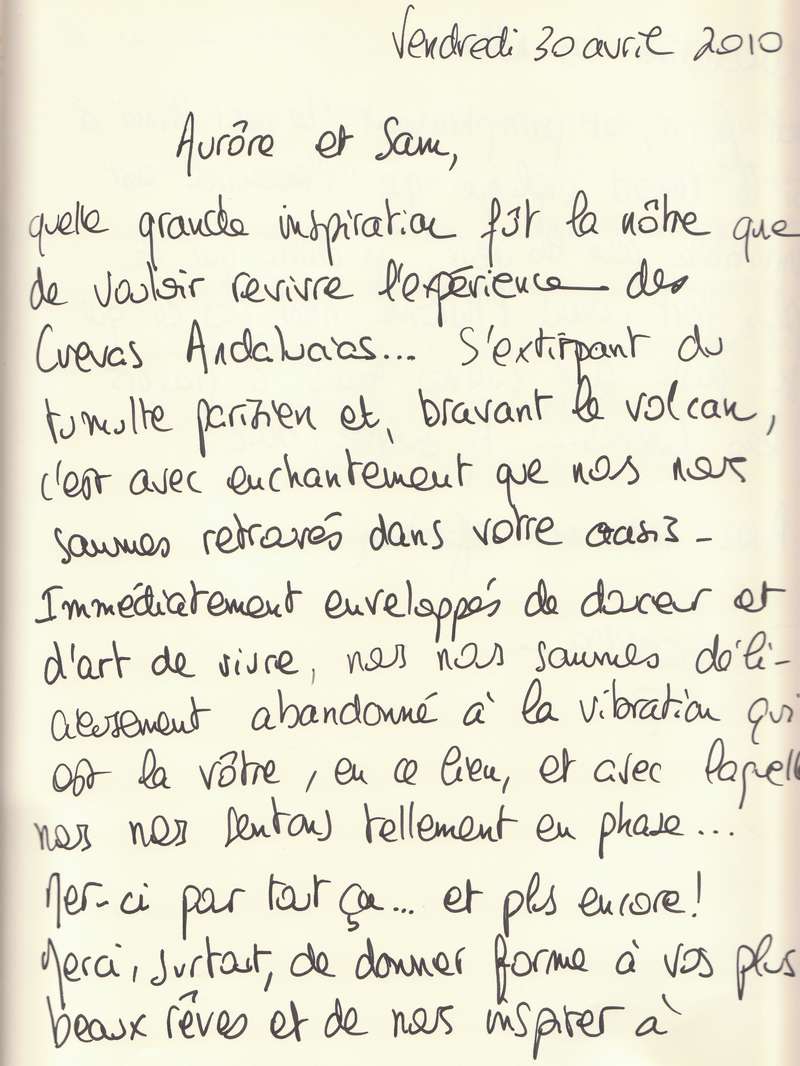 Vendredi 30 avril 2010
Aurôre et Sam,
quelle grande inspiration fût la nôtre que
de vouloir revivre l'expérience des
Cuevas Andalucias... S'extirpant du
tumulte parisien et, bravant le volcan,
c'est avec enchantement que nous nous
sommes retrouvés dans votre oasis -
Immédiatement enveloppés de douceur et
d'art de vivre, nous nous sommes déli-
cieusement abandonné à la vibration qui
est la vôtre, en ce lieu, et avec laquelle
nous nous sentons tellement en phase...
Mer-ci pour tout ça... et plus encore!
Merci, surtout, de donner forme à vos plus
beaux rêves et de nous inspirer à